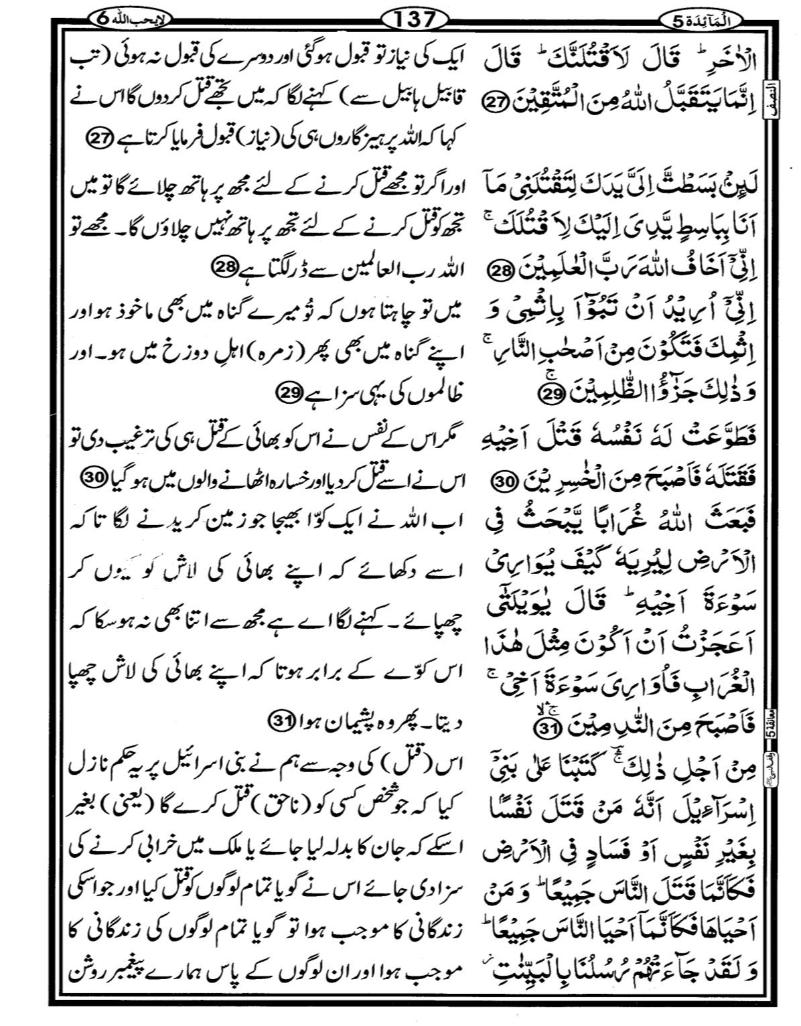 اَلْمَآئِدَة 5
137
لَا يُحِبُّ اللّٰه 6
الْاٰخَرِ ؕ قَالَ لَاَقْتُلَنَّكَ ؕ قَالَ
اِنَّمَا يَتَقَبَّلُ اللّٰهُ مِنَ الْمُتَّقِيْنَ 27
لَئِنْۢ بَسَطْتَّ اِلَیَّ يَدَكَ لِتَقْتُلَنِیْ مَاۤ
اَنَا بِبَاسِطٍ يَّدِیَ اِلَيْكَ لِاَقْتُلَكَ ۚ
اِنِّیْۤ اَخَافُ اللّٰهَ رَبَّ الْعٰلَمِيْنَ 28
اِنِّیْۤ اُرِيْدُ اَنْ تَبُوْٓاَ بِاِثْمِیْ وَ
اِثْمِكَ فَتَكُوْنَ مِنْ اَصْحٰبِ النَّارِ ۚ
وَ ذٰلِكَ جَزٰٓؤُا الظّٰلِمِيْنَ ۚ 29
فَطَوَّعَتْ لَهٗ نَفْسُهٗ قَتْلَ اَخِيْهِ
فَقَتَلَهٗ فَاَصْبَحَ مِنَ الْخٰسِرِيْنَ 30
فَبَعَثَ اللّٰهُ غُرَابًا يَّبْحَثُ فِی
الْاَرْضِ لِيُرِيَهٗ كَيْفَ يُوَارِیْ
سَوْءَةَ اَخِيْهِ ؕ قَالَ يٰوَيْلَتٰۤی
اَعَجَزْتُ اَنْ اَكُوْنَ مِثْلَ هٰذَا
الْغُرَابِ فَاُوَارِیَ سَوْءَةَ اَخِیْ ۚ
فَاَصْبَحَ مِنَ النّٰدِمِيْنَ ۚۛۙ 31
مِنْ اَجْلِ ذٰلِكَ ۚۛؔ كَتَبْنَا عَلٰی بَنِیْۤ
اِسْرَآءِيْلَ اَنَّهٗ مَنْ قَتَلَ نَفْسًۢا
بِغَيْرِ نَفْسٍ اَوْ فَسَادٍ فِی الْاَرْضِ
فَكَاَنَّمَا قَتَلَ النَّاسَ جَمِيْعًا ؕ وَ مَنْ
اَحْيَاهَا فَكَاَنَّمَاۤ اَحْيَا النَّاسَ جَمِيْعًا ؕ
وَ لَقَدْ جَآءَتْهُمْ رُسُلُنَا بِالْبَيِّنٰتِ ؗ
ایک کی نیاز تو قبول ہو گئی اور دوسرے کی قبول نہ ہوئی (تب
قابیل ہابیل سے) کہنے لگا کہ میں تجھے قتل کردوں گا اس نے
کہا کہ اللہ پرہیزگاروں ہی کی (نیاز) قبول فرمایا کرتا ہے 27
اور اگر تو مجھے قتل کرنے کے لئے مجھ پر ہاتھ چلائے گا تو میں
تجھ کو قتل کرنے کے لئے تجھ پر ہاتھ نہیں چلاؤں گا۔ مجھے تو
اللہ رب العالمین سے ڈر لگتا ہے 28
میں تو چاہتا ہوں کہ تُو میرے گناہ میں بھی ماخوذ ہو اور
اپنے گناہ میں بھی پھر (زمرہ) اہلِ دوزخ میں ہو۔ اور
ظالموں کی یہی سزا ہے 29
مگر اس کے نفس نے اس کو بھائی کے قتل ہی کی ترغیب دی تو
اس نے اسے قتل کر دیا اور خسارہ اٹھانے والوں میں ہو گیا 30
اب اللہ نے ایک کوّا بھیجا جو زمین کریدنے لگا تا کہ
اسے دکھائے کہ اپنے بھائی کی لاش کو کیوں کر
چھپائے۔ کہنے لگا اے ہے مجھ سے اتنا بھی نہ ہو سکا کہ
اس کوّے کے برابر ہوتا کہ اپنے بھائی کی لاش چھپا
دیتا۔ پھر وہ پشیمان ہوا 31
اس (قتل) کی وجہ سے ہم نے بنی اسرائیل پر یہ حکم نازل
کیا کہ جو شخص کسی کو (ناحق) قتل کرے گا (یعنی) بغیر
اسکے کہ جان کا بدلہ لیا جائے یا ملک میں خرابی کرنے کی
سزا دی جائے اس نے گویا تمام لوگوں کو قتل کیا اور جو اسکی
زندگانی کا موجب ہوا تو گویا تمام لوگوں کی زندگانی کا
موجب ہوا اور ان لوگوں کے پاس ہمارے پیغمبر روشن
النصف
معانقة 5